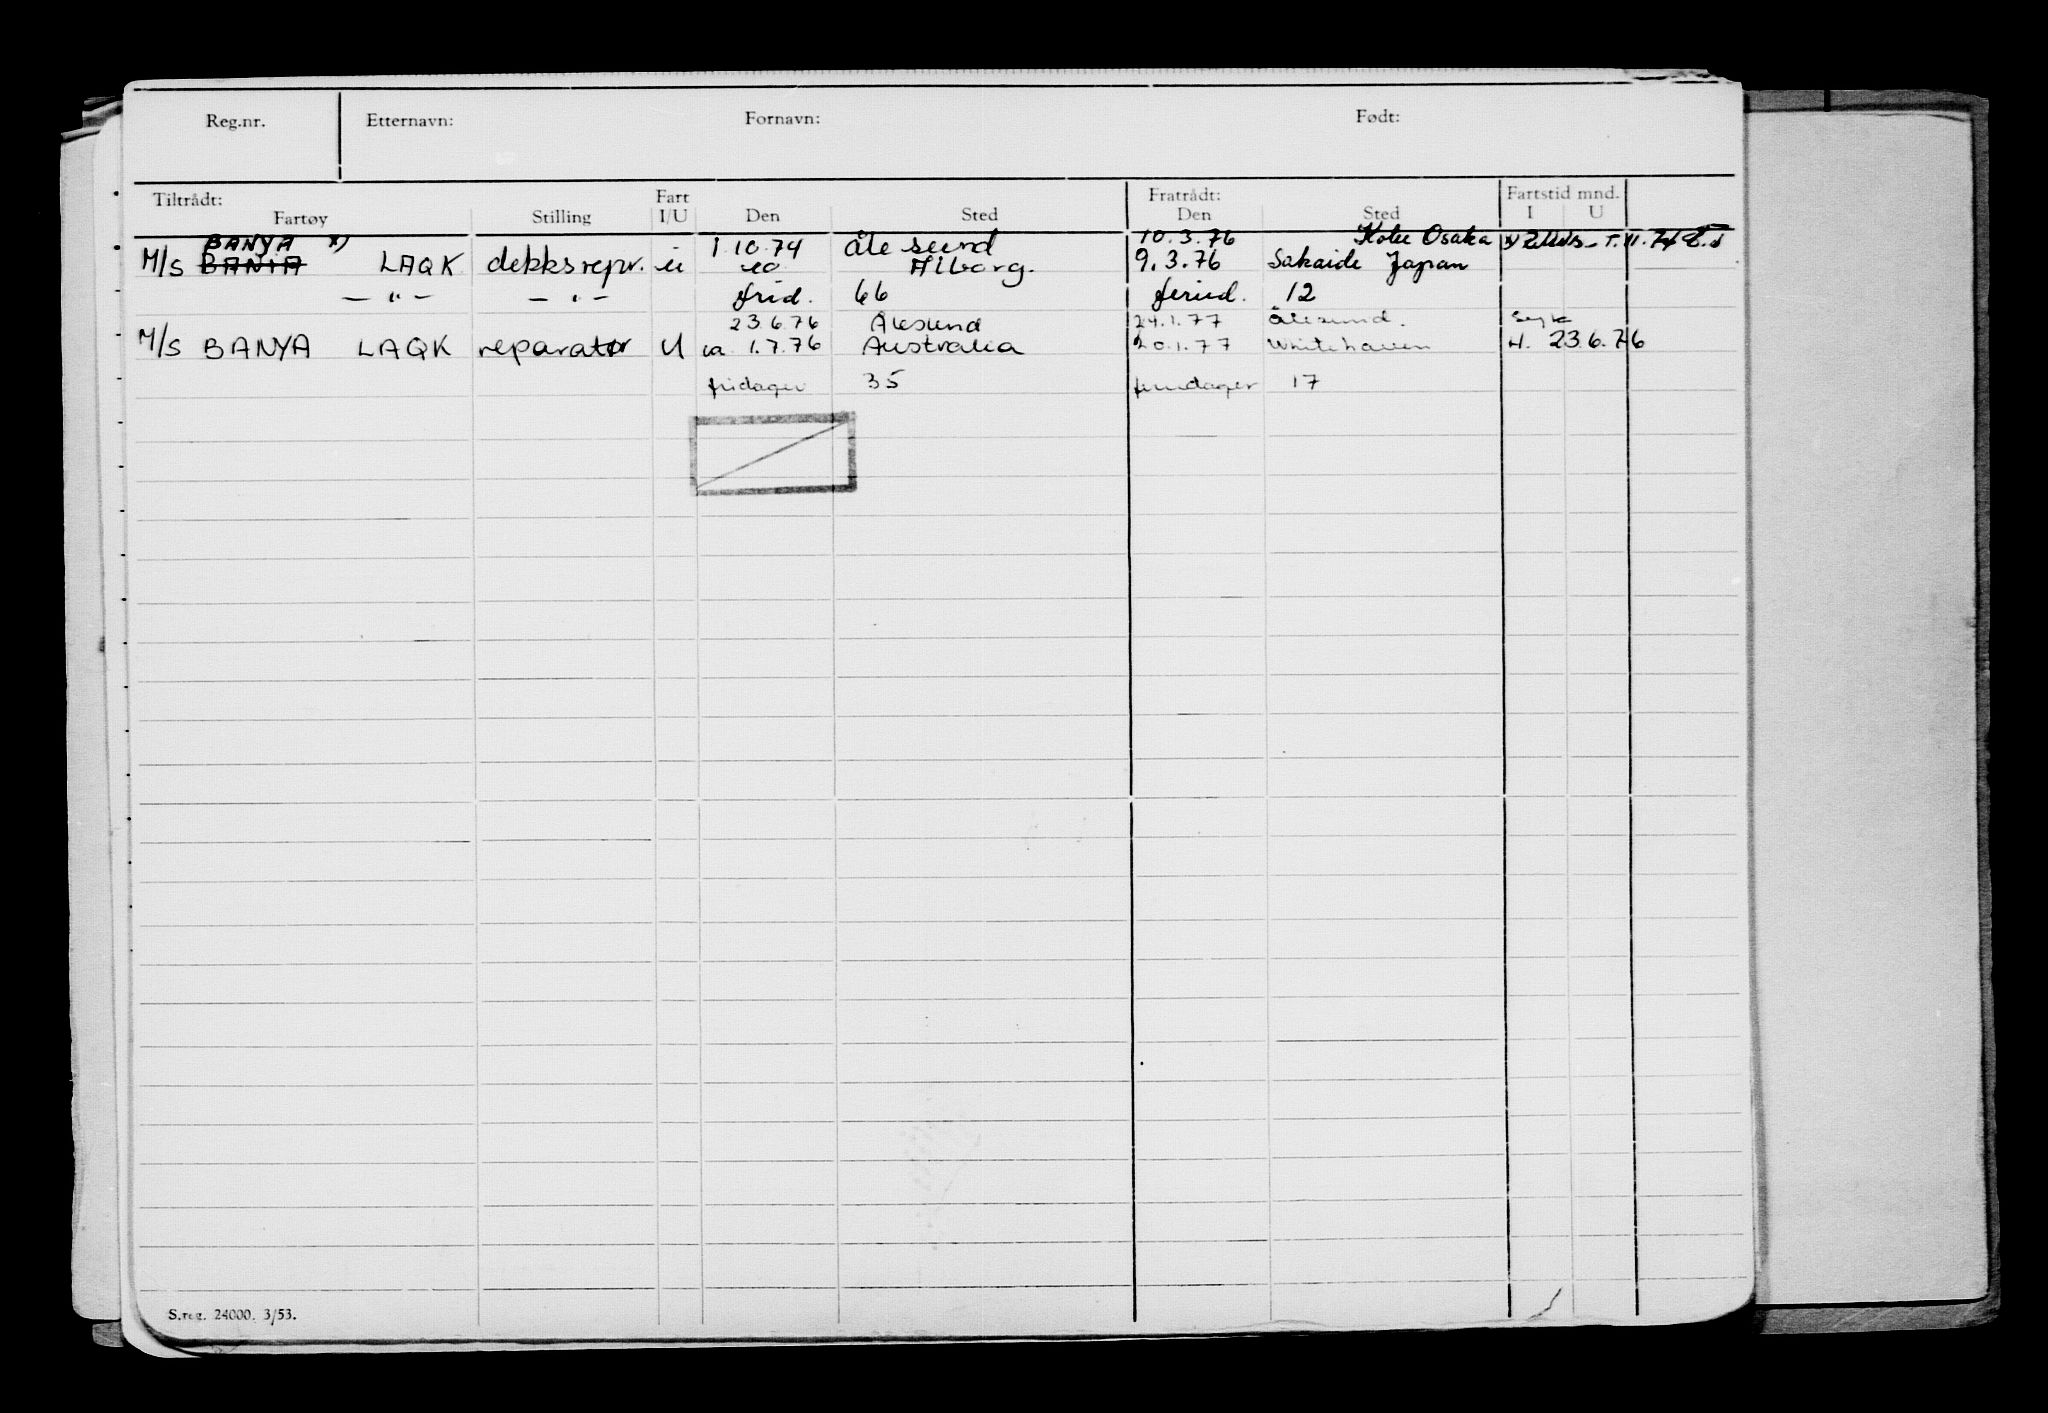 Reg.nr. Etternavn: Fornavn: Født:
Tiltrådt: Fart Fratrådt: Fartstid mnd.
Fartøy Stilling I/U Den Sted Den Sted I U
BANYA x) 1.10.74 Ålesund 10.3.76 Kobe Osaka
M/S BANIA LAQK dekksrepr. u Ålborg. 9.3.76 Sakaide Japan
— " — — " — frid. 66 feried. 12
23.6.76 Ålesund 24.1.77 Ålesund.
M/S BANYA LAQK reparatør U 1.7.76 Australia 20.1.77 Whitehaven H. 23.6.76
fridager 35 feriedager 17
S.reg. 24000. 3/53.